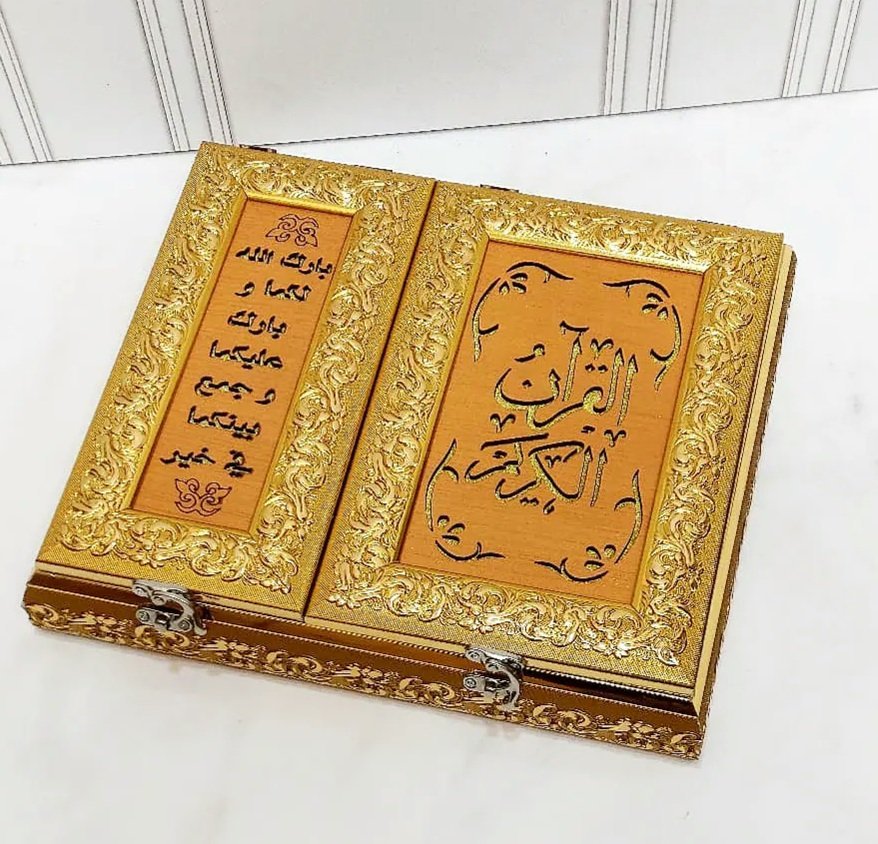 القرآن
الكريم
بارك الله
لكما و
بارك
عليكما
و جمع
بينكما
في خير